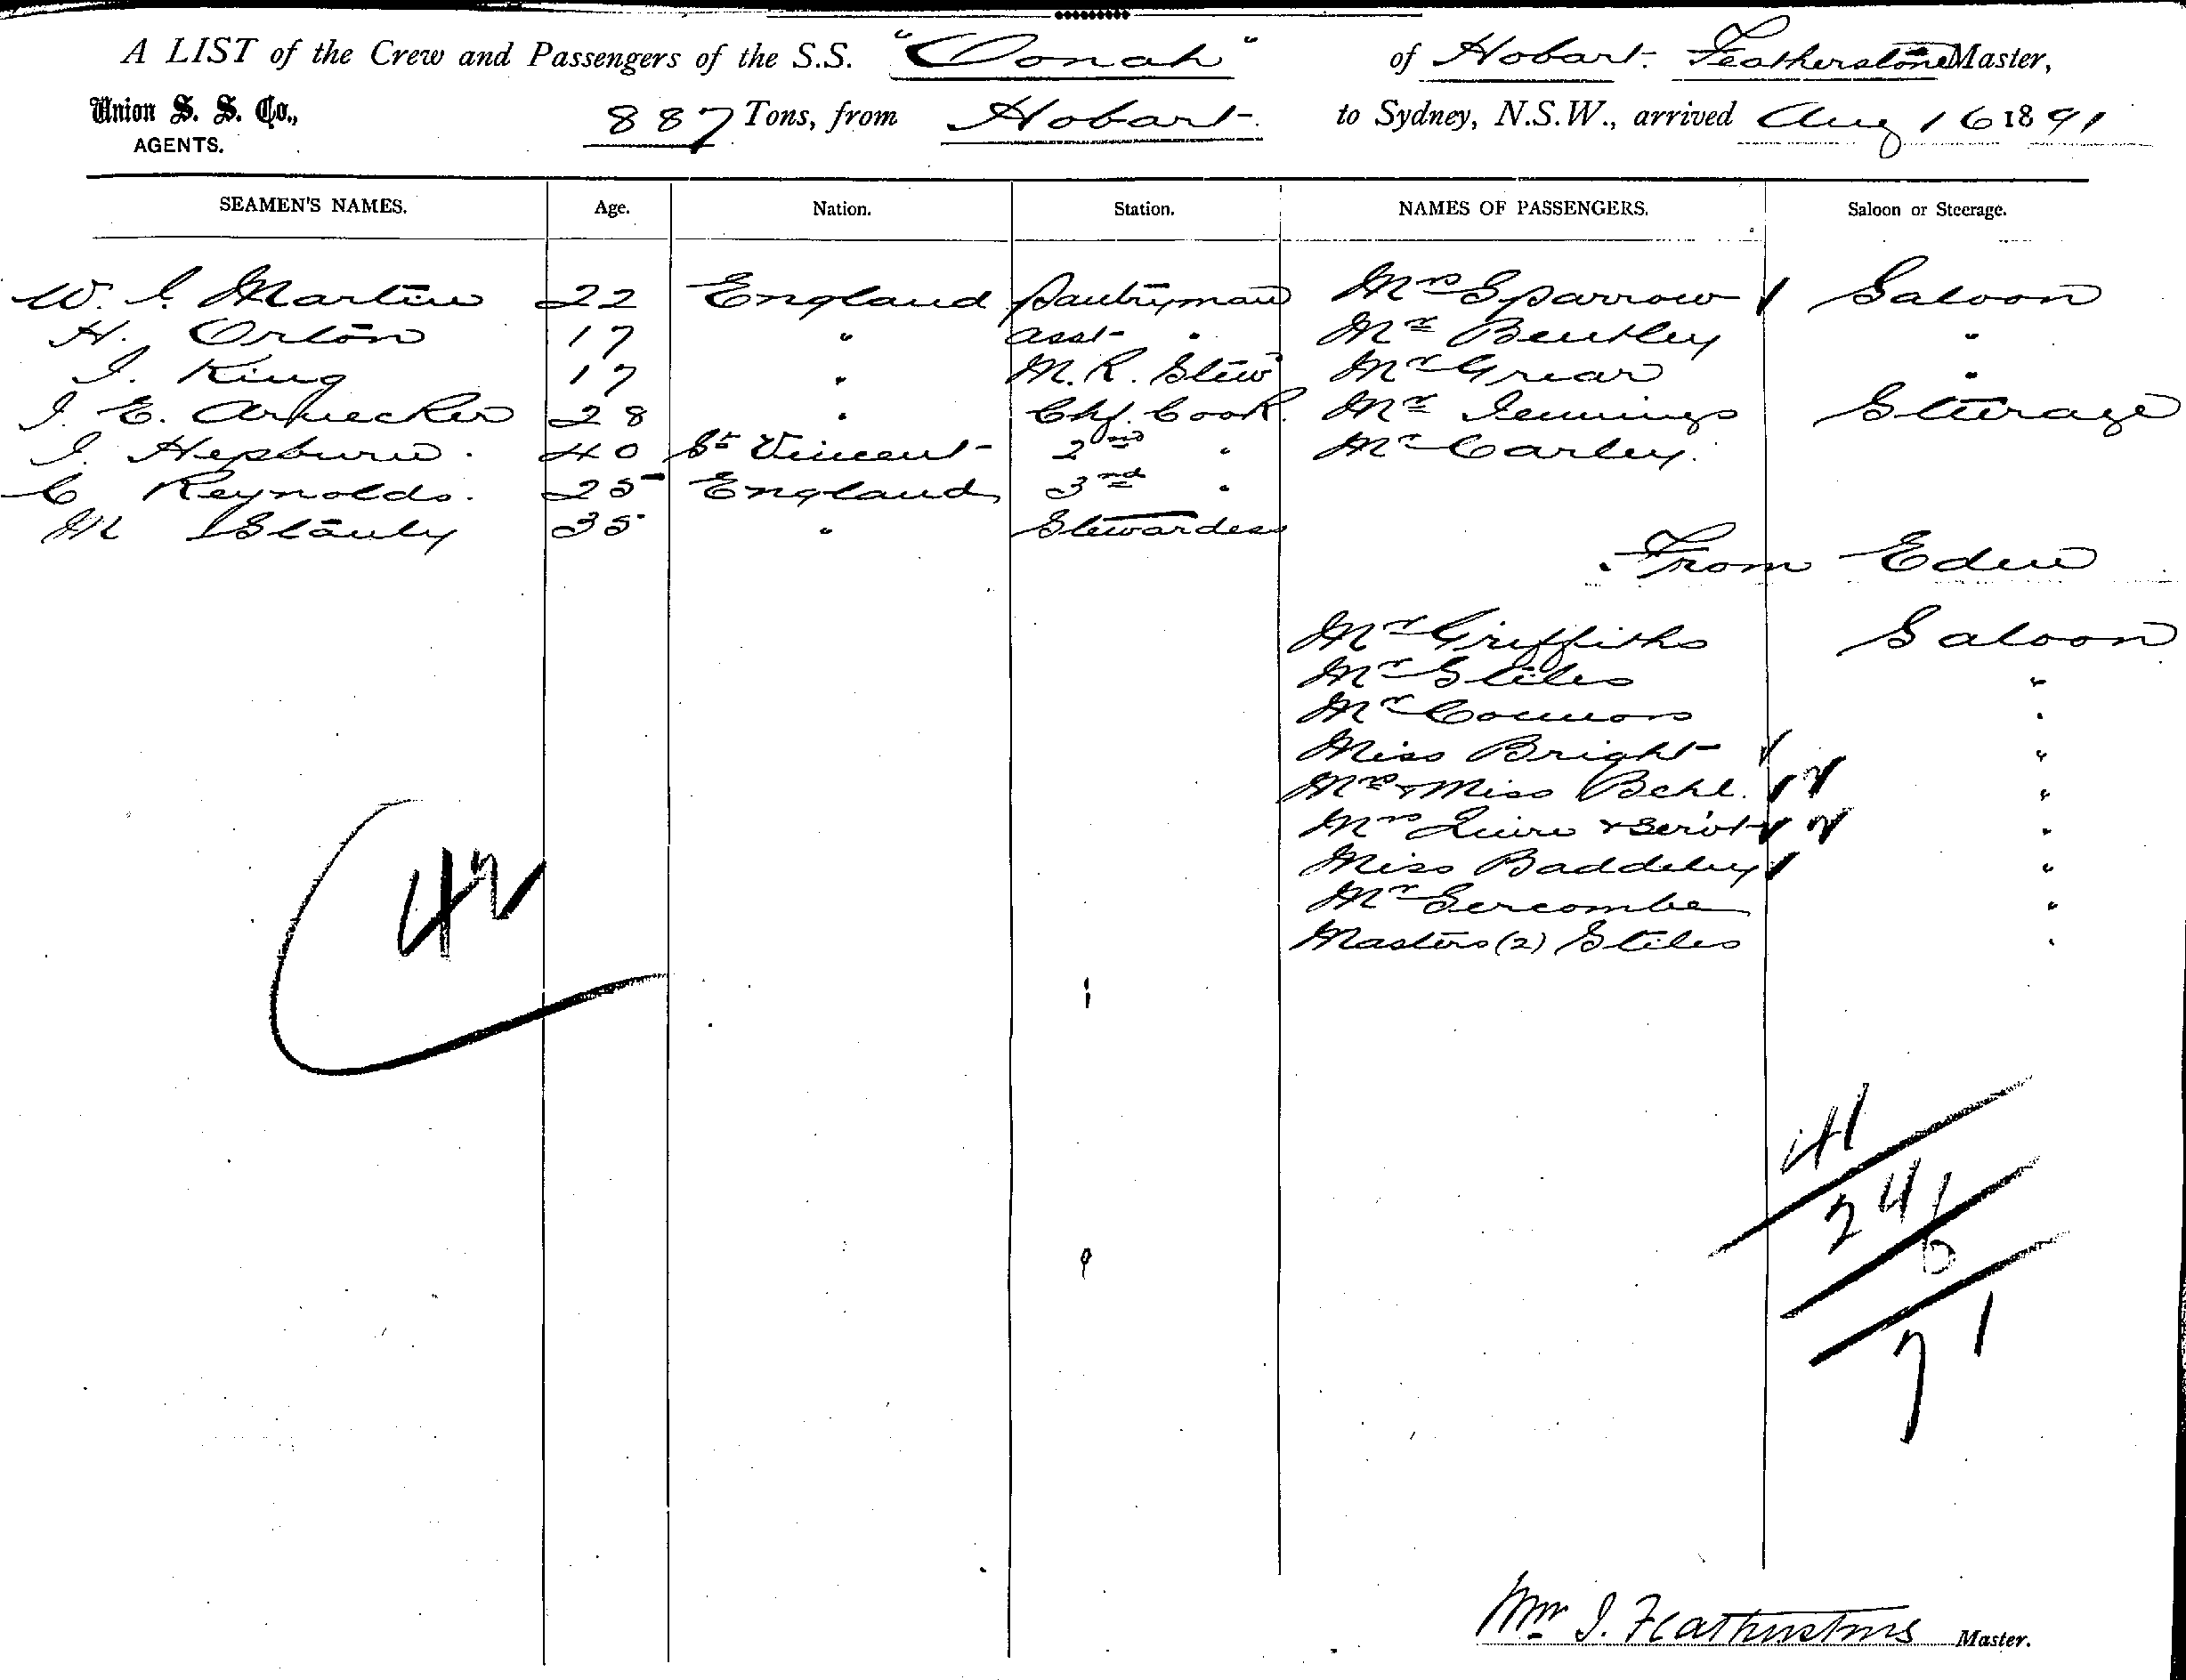 A LIST of the Crew and Passengers of the S.S. "Oonah" of Hobart. Featherstone Master,
Union S. S. Co., 887 Tons, from Hobart to Sydney, N.S.W., arrived Aug 16 1891
AGENTS.
SEAMEN'S NAMES. Age. Nation. Station. NAMES OF PASSENGERS. Saloon or Steerage.
W. J. Martin 22 England Pantryman Mrs Sparrow Saloon
H. Orton 17 " Asst " Mr Bentley "
J. King 17 " M. R. Stew Mr Grear "
J. E. 28 " Chf. Cook. Mr Jennings Steerage
J. Hepburn. 40 St Vincent 2nd " Mr Carley.
C Reynolds. 25 England 3rd "
M Stanly 35 " Stewardess
From Eden
Mr Griffiths Saloon
Mr Stiles "
Mr Connors "
Miss Bright "
Mrs & Miss Behl. "
Mrs & Servt "
Miss Baddeley "
Mr Sercombe "
Masters (2) Stiles "
42
41
24
6
71
Wm J. Featherstone Master.